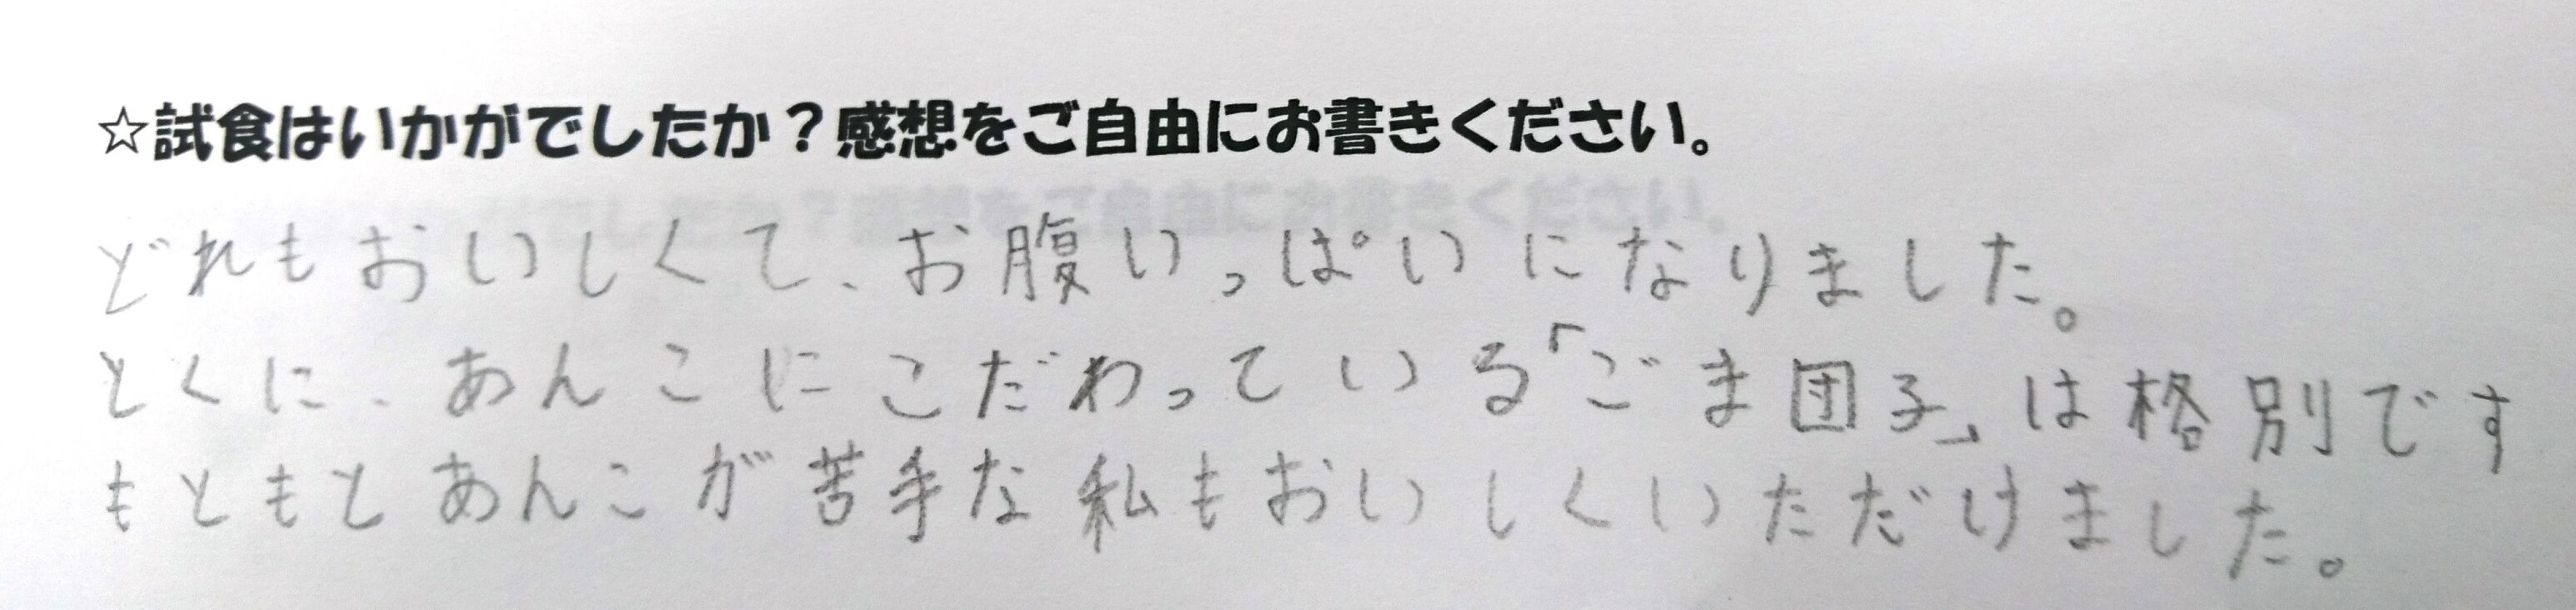 ☆試食はいかがでしたか？感想をご自由にお書きください。
どれもおいしくて、お腹いっぱいになりました。
とくに、あんこにこだわっている「ごま団子」は格別です
もともとあんこが苦手な私もおいしくいただけました。